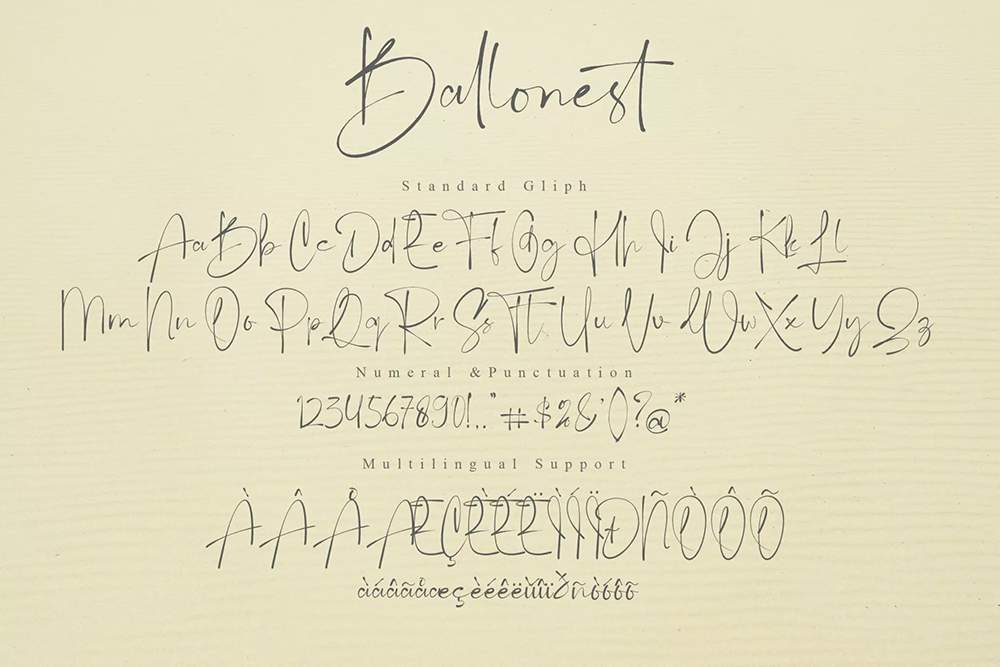 Ballonest
Standard Gliph
Aa Bb Cc Dd Ee Ff Gg Hh Ii Jj Kk Ll
Mm Nn Oo Pp Qq Rr Ss Tt Uu Vv Ww Xx Yy Zz
Numeral &Punctuation
1234567890!.,." #$%&'()?@*
Multilingual Support
ÀÂÅÆÇÈÉËÌÍÏÐÑÒÔÕ
àáâãåæçèéêëìíîïŽñòóôõ